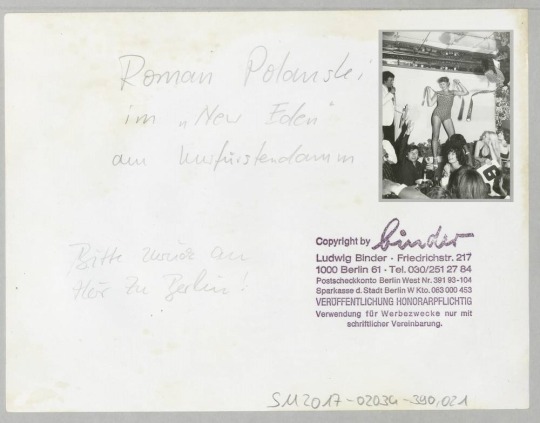 Roman Polanski
im „New Eden"
am Kurfürstendamm
Bitte zurück an
Hör Zu Berlin!
Copyright by binder
Ludwig Binder · Friedrichstr. 217
1000 Berlin 61 · Tel. 030/251 27 84
Postscheckkonto Berlin West Nr. 391 93-104
Sparkasse d. Stadt Berlin W Kto. 063 000 453
VERÖFFENTLICHUNG HONORARPFLICHTIG
Verwendung für Werbezwecke nur mit
schriftlicher Vereinbarung.
SM2017-02034-390,021